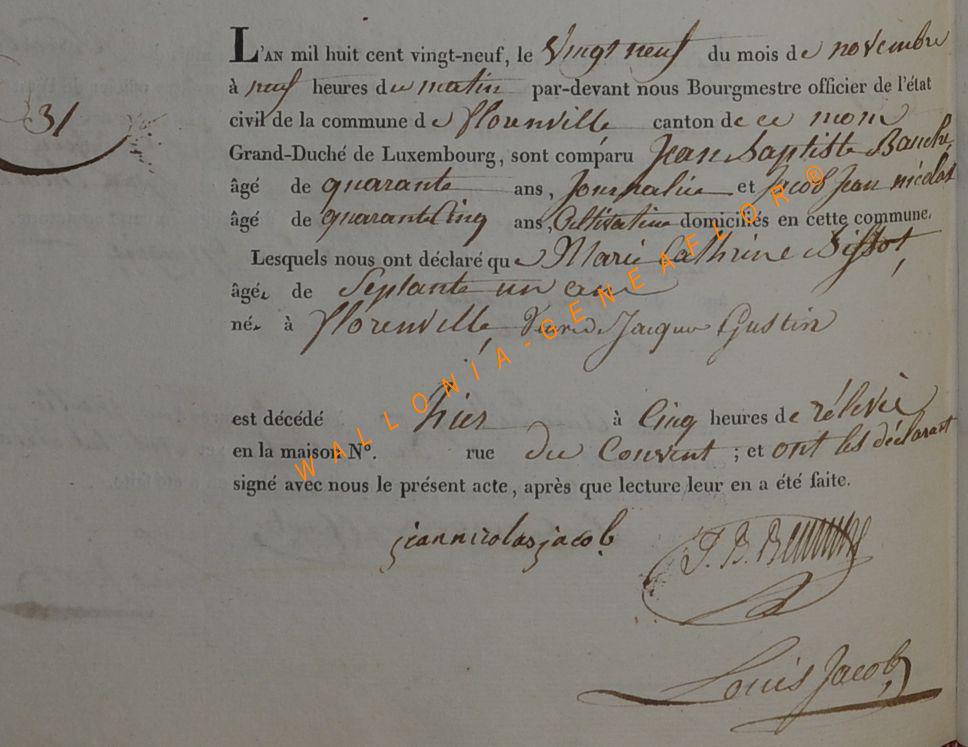 31
L'AN mil huit cent vingt-neuf, le Vingt neuf du mois de novembre
à neuf heures du matin par-devant nous Bourgmestre officier de l'état
civil de la commune de florenville canton de ce nom
Grand-Duché de Luxembourg, sont comparu Jean Baptiste
âgé de quarante ans, Journalier et Jacob Jean nicolas
âgé de quarante Cinq ans, Cultivateur domiciliés en cette commune.
Lesquels nous ont déclaré que Marie Cathrine Bissot,
âgée de Septante un ans
née à florenville, Veuve Jacque Gustin
est décédé hier à Cinq heures de rélévée
en la maison N°. rue du Couvent ; et ont les déclarant
signé avec nous le présent acte, après que lecture leur en a été faite.
jeannicolasjacob
J. B.
Louis Jacob
WALLONIA-GENEAFLOR®